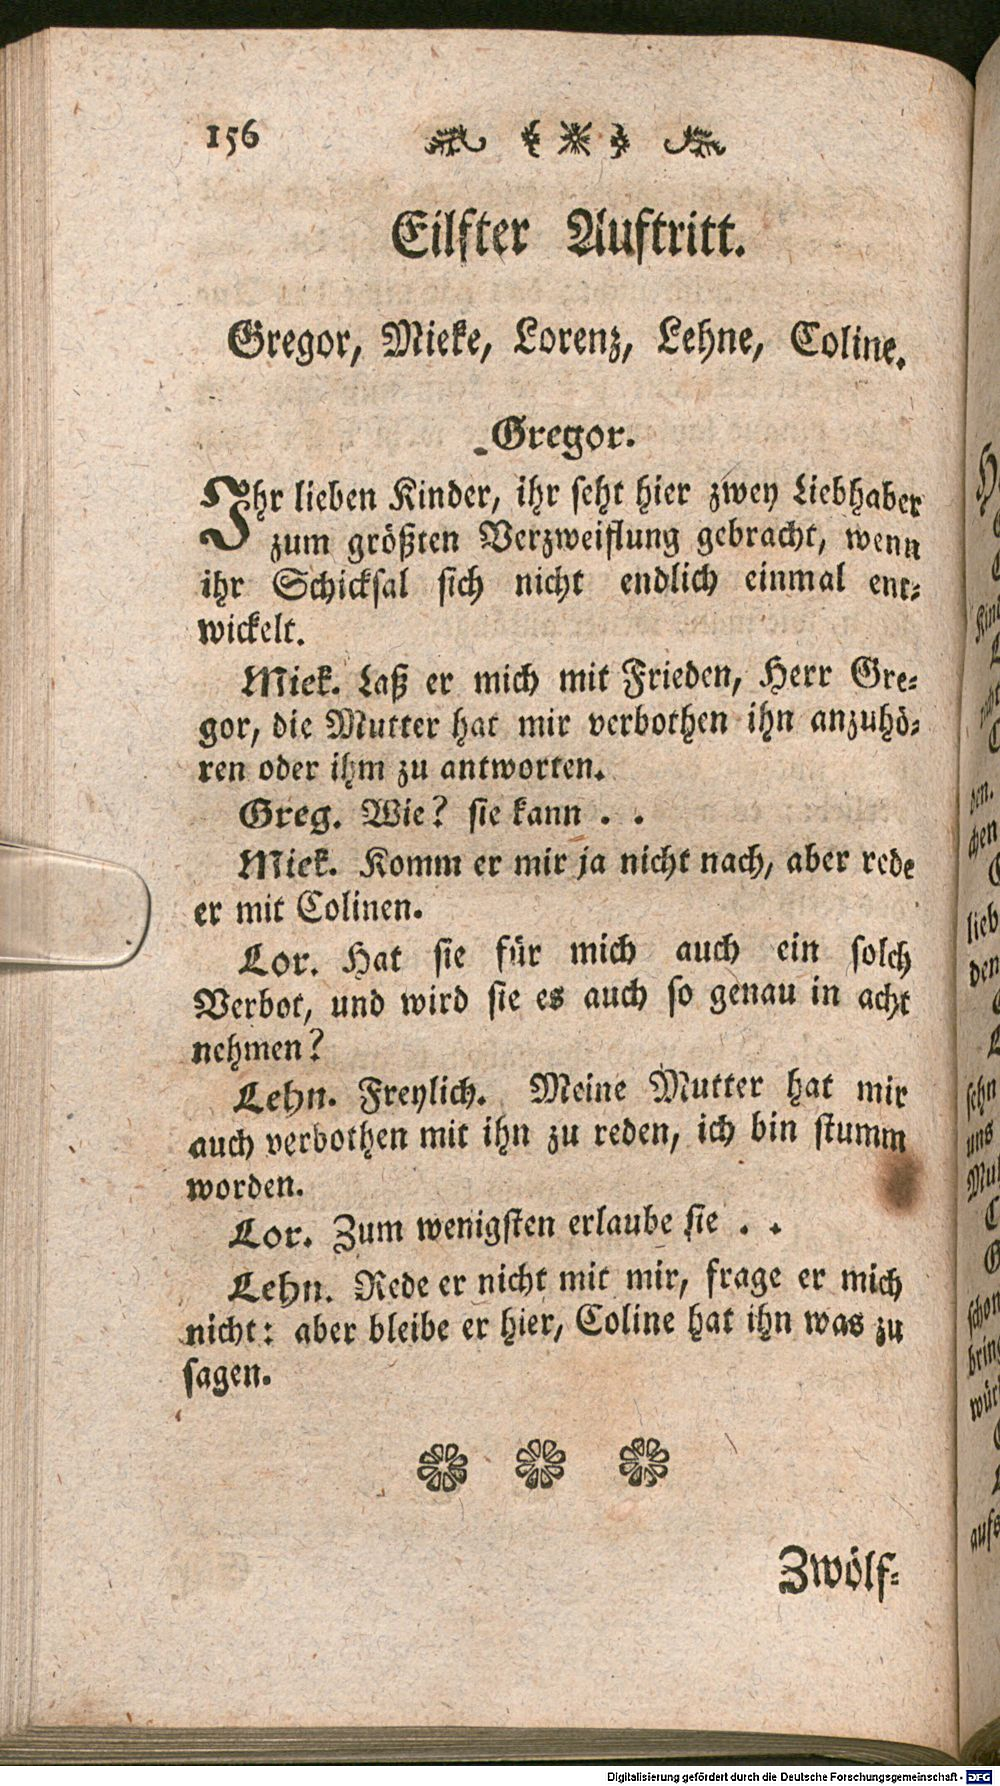 156
Eilfter Auftritt.
Gregor, Mieke, Lorenz, Lehne, Coline.
Gregor.
Ihr lieben Kinder, ihr seht hier zwey Liebhaber
zum größten Verzweiflung gebracht, wenn
ihr Schicksal sich nicht endlich einmal ent-
wickelt.
Miek. Laß er mich mit Frieden, Herr Gre-
gor, die Mutter hat mir verbothen ihn anzuhö-
ren oder ihm zu antworten.
Greg. Wie? sie kann . .
Miek. Komm er mir ja nicht nach, aber rede
er mit Colinen.
Lor. Hat sie für mich auch ein solch
Verbot, und wird sie es auch so genau in acht
nehmen?
Lehn. Freylich. Meine Mutter hat mir
auch verbothen mit ihn zu reden, ich bin stumm
worden.
Lor. Zum wenigsten erlaube sie . .
Lehn. Rede er nicht mit mir, frage er mich
nicht: aber bleibe er hier, Coline hat ihn was zu
sagen.
Zwölf-
Digitalisierung gefördert durch die Deutsche Forschungsgemeinschaft - DFG